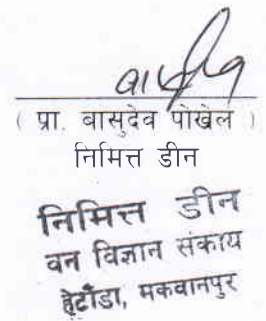 ( प्रा. बासुदेव पोखेल )
निमित्त डीन
निमित्त डीन
वन विज्ञान संकाय
हेटौंडा, मकवानपुर